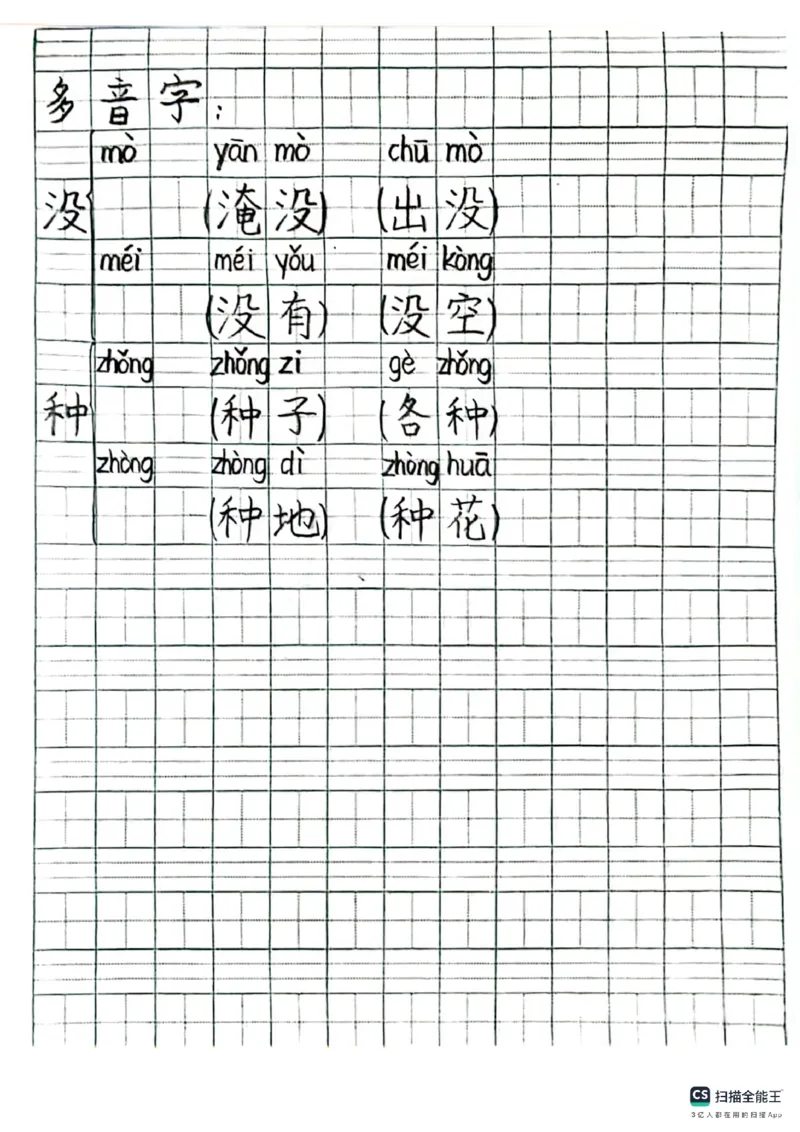 多音字：
mò yān mò chū mò
没 (淹没) (出没)
méi méi yǒu méi kòng
(没有) (没空)
zhǒng zhǒng zi gè zhǒng
种 (种子) (各种)
zhòng zhòng dì zhòng huā
(种地) (种花)
CS 扫描全能王
3亿人都在用的扫描App